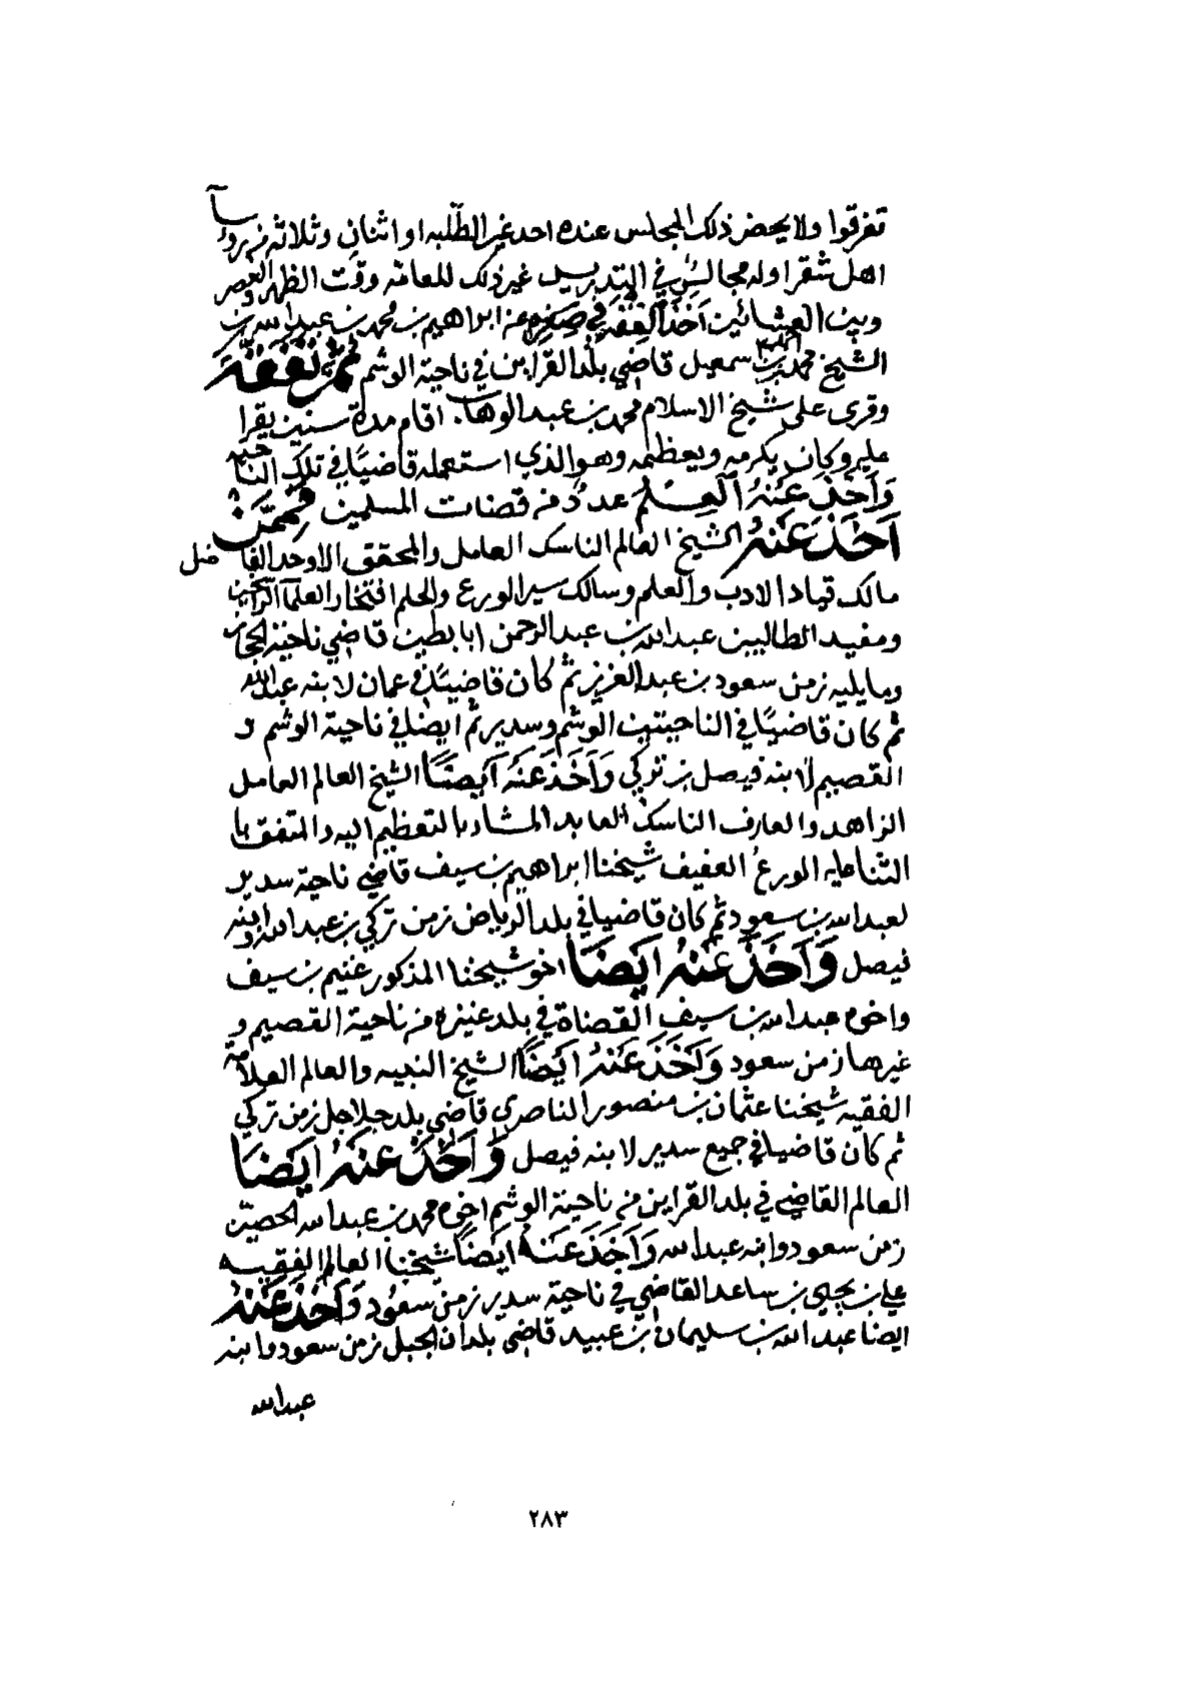 تفرقوا ولا يحضر ذلك المجلس عنده احد غير الطلبه او اثنان وثلاثه من رؤسآ
اهل شقرا وله مجالسٌ في التدريس غير ذلك للعامه وقت الظهر والعصر
وبين العشائين اَخَذَ الفِقْهَ في صِغَرِهِ عن ابراهيم بن محمد بن عبد الله بن
الشيخ محمد بن احمد بن سمعيل قاضي بلد القراين في ناحية الوشم ثمَّ تفقَّهَ
وقرى على شيخ الاسلام محمد بن عبد الوهاب. اقام مدة سنين يقرا
عليه وكان يكرمه ويعظمه وهو الذي استعمله قاضيًا في تلك الناحيه
وَاَخَذَ عَنْهُ العِلْمَ عددٌ من قضات المسلمين فممَّنْ
اَخَذَ عَنْهُ الشيخ العالم الناسك العامل والمحقق الاوحد الفاضل
مالك قياد الادب والعلم وسالك سير الورع والحلم افتخار العلمآ الراسخين
ومفيد الطالبين عبد الله بن عبد الرحمن ابا بطين قاضي ناحية الحجاز
وما يليه زمن سعود بن عبد العزيز ثم كان قاضيًا في عمان لابنه عبد الله
ثم كان قاضيًا في الناحيتين الوشم وسدير ثم ايضا في ناحية الوشم و
القصيم لابنه فيصل بن تركي وَاَخَذَ عَنْهُ اَيضًا الشيخ العالم العامل
الزاهد والعارف الناسك العابد المشاد بالتعظيم اليه والمتفق با
الثنا عليه الورع العفيف شيخنا ابراهيم بن سيف قاضي ناحية سدير
لعبد الله بن سعود ثم كان قاضيا في بلد الرياض زمن تركي بن عبد الله وابنه
فيصل وَاَخَذَ عَنْهُ ايضًا اخو شيخنا المذكور غنيم بن سيف
واخوه عبد الله بن سيف القضاة في بلد عنيزه من ناحية القصيم و
غيرها زمن سعود وَاَخَذَ عَنْهُ ايضًا الشيخ النبيه والعالم العلامة
الفقيه شيخنا عثمان بن منصور الناصري قاضي بلد جلاجل زمن تركي
ثم كان قاضيا في جميع سدير لابنه فيصل وَاَخَذَ عَنْهُ ايضًا
العالم القاضي في بلد القراين من ناحية الوشم اخوه محمد بن عبد الله الحصيّن
زمن سعود وابنه عبد الله وَاَخَذَ عَنْهُ ايضًا شيخنا العالم الفقيه
علي بن يحيى بن ساعد القاضي في ناحية سدير زمن سعود وَاَخَذَ عَنْهُ
ايضا عبد الله بن سليمان بن عبيد قاضي بلدان الجبل زمن سعود وابنه
عبد الله
٢٨٣